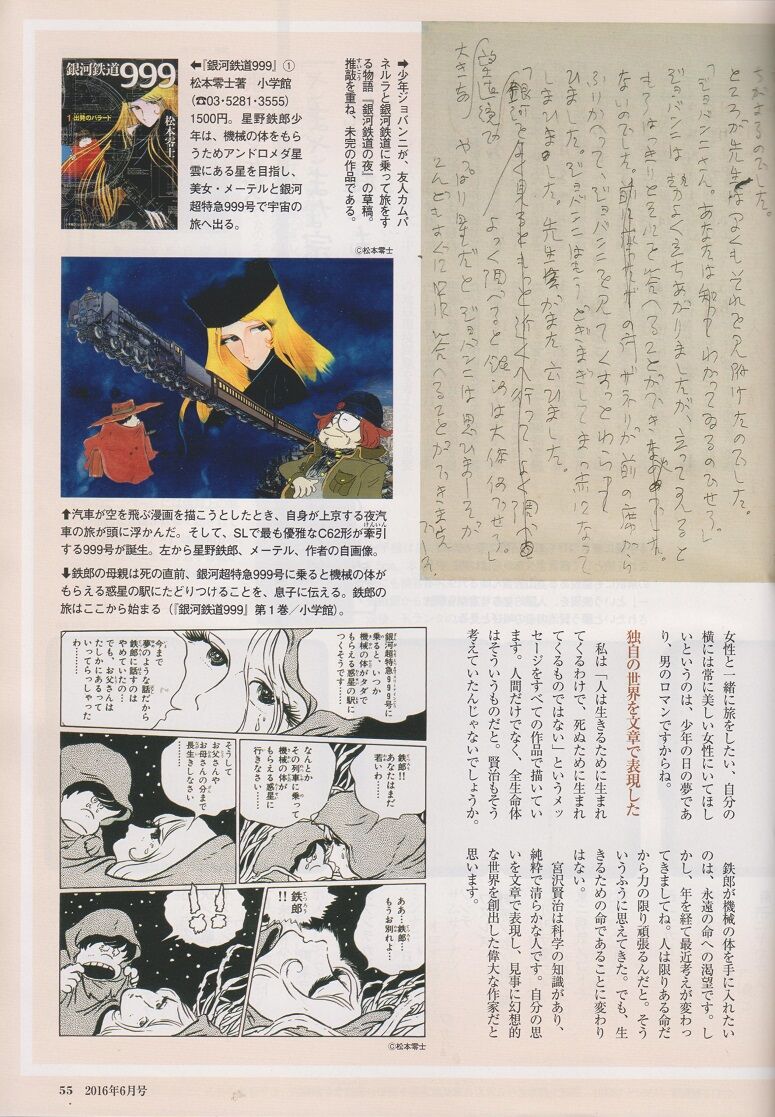 ところが先生は早くもそれを見附けたのでした。
「ジョバンニさん。あなたは わかってゐるのでせう。」
ジョバンニは勢よく立ちあがりましたが、立って見ると
もうはっきりとそれを答へることができ
ないのでした。 ザネリが前の席から
ふりかへって、ジョバンニを見てくすっとわらひ
ました。ジョバンニはもうどぎまぎしてまっ赤になって
しまひました。先生がまた云ひました。
望遠鏡で よっく調べると銀河は大体何でせう。」
大きな やっぱり星だとジョバンニは思ひましたが
こんどもすぐに 答へることができません
➡少年ジョバンニが、友人カムパ
ネルラと銀河鉄道に乗って旅をす
る物語『銀河鉄道の夜』の草稿。
推敲を重ね、未完の作品である。
すいこう
銀河鉄道999
1 出発のバラード
松本零士
⬅『銀河鉄道999』①
松本零士著 小学館
(☎03・5281・3555)
1500円。星野鉄郎少
年は、機械の体をもら
うためアンドロメダ星
雲にある星を目指し、
美女・メーテルと銀河
超特急999号で宇宙の
旅へ出る。
©松本零士
⬆汽車が空を飛ぶ漫画を描こうとしたとき、自身が上京する夜汽
車の旅が頭に浮かんだ。そして、SLで最も優雅なC62形が牽引
けんいん
する999号が誕生。左から星野鉄郎、メーテル、作者の自画像。
⬇鉄郎の母親は死の直前、銀河超特急999号に乗ると機械の体が
もらえる惑星の駅にたどりつけることを、息子に伝える。鉄郎の
旅はここから始まる(『銀河鉄道999』第1巻/小学館)。
銀河超特急999号に
乗ると、いつか
機械の体がタダで
もらえる惑星の駅に
つくそうです……
今まで
夢のような話だから
鉄郎に話すのは
やめていたの…
でも、お父さんは
たしかにあるって
いってらっしゃった
わ……
鉄郎!!
あなたはまだ
若いわ……
なんとか
その列車に乗って
機械の体が
もらえる惑星に
行きなさい……
そうして
お父さんや
お母さんの分まで
長生きしなさい
ああ…鉄郎…
もうお別れよ…
鉄郎
!!
©松本零士
女性と一緒に旅をしたい、自分の
横には常に美しい女性にいてほし
いというのは、少年の日の夢であ
り、男のロマンですからね。
独自の世界を文章で表現した
私は「人は生きるために生まれ
てくるわけで、死ぬために生まれ
てくるものではない」というメッ
セージをすべての作品で描いてい
ます。人間だけでなく、全生命体
はそういうものだと。賢治もそう
考えていたんじゃないでしょうか。
鉄郎が機械の体を手に入れたい
のは、永遠の命への渇望です。し
かし、年を経て最近考えが変わっ
てきましてね。人は限りある命だ
から力の限り頑張るんだと。そう
いうふうに思えてきた。でも、生
きるための命であることに変わり
はない。
宮沢賢治は科学の知識があり、
純粋で清らかな人です。自分の思
いを文章で表現し、見事に幻想的
な世界を創出した偉大な作家だと
思います。
55 2016年6月号